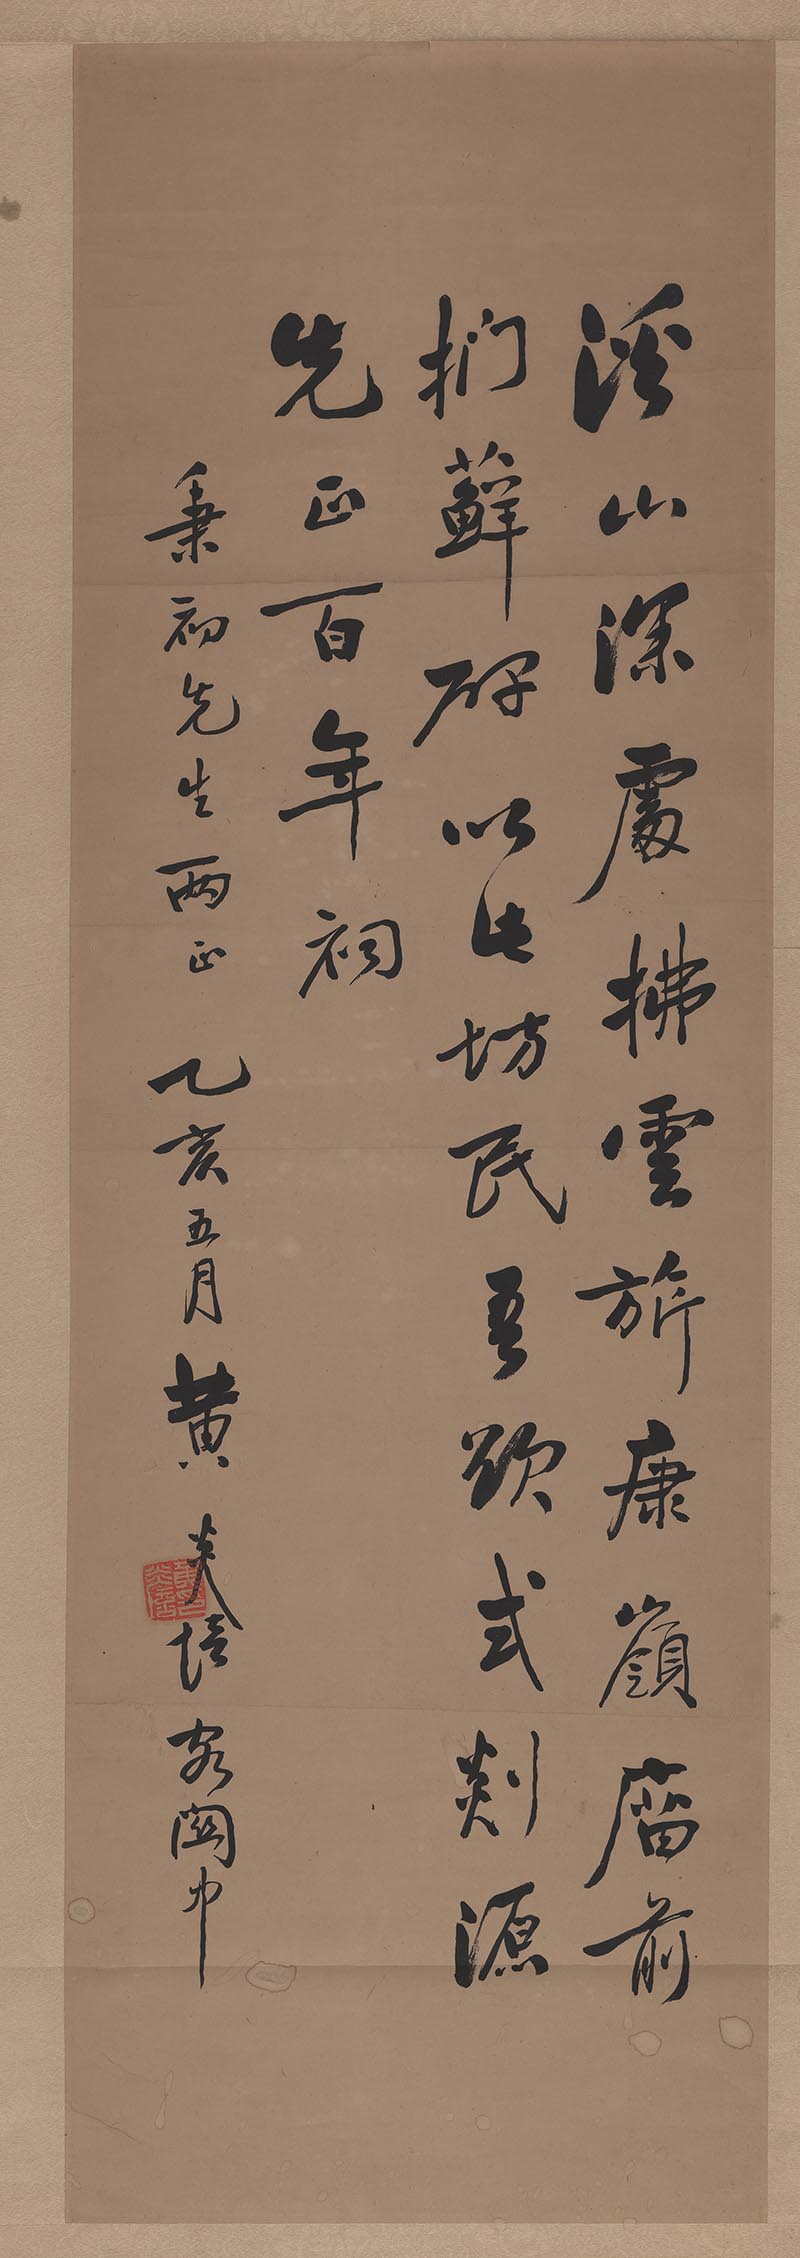 溪山深處拂雲旂康嶺廟前
捫蘚碑以此坊民吾欲式剡源
先正百年祠
秉初先生兩正 乙亥五月 黄炎培客閩中
黄炎培